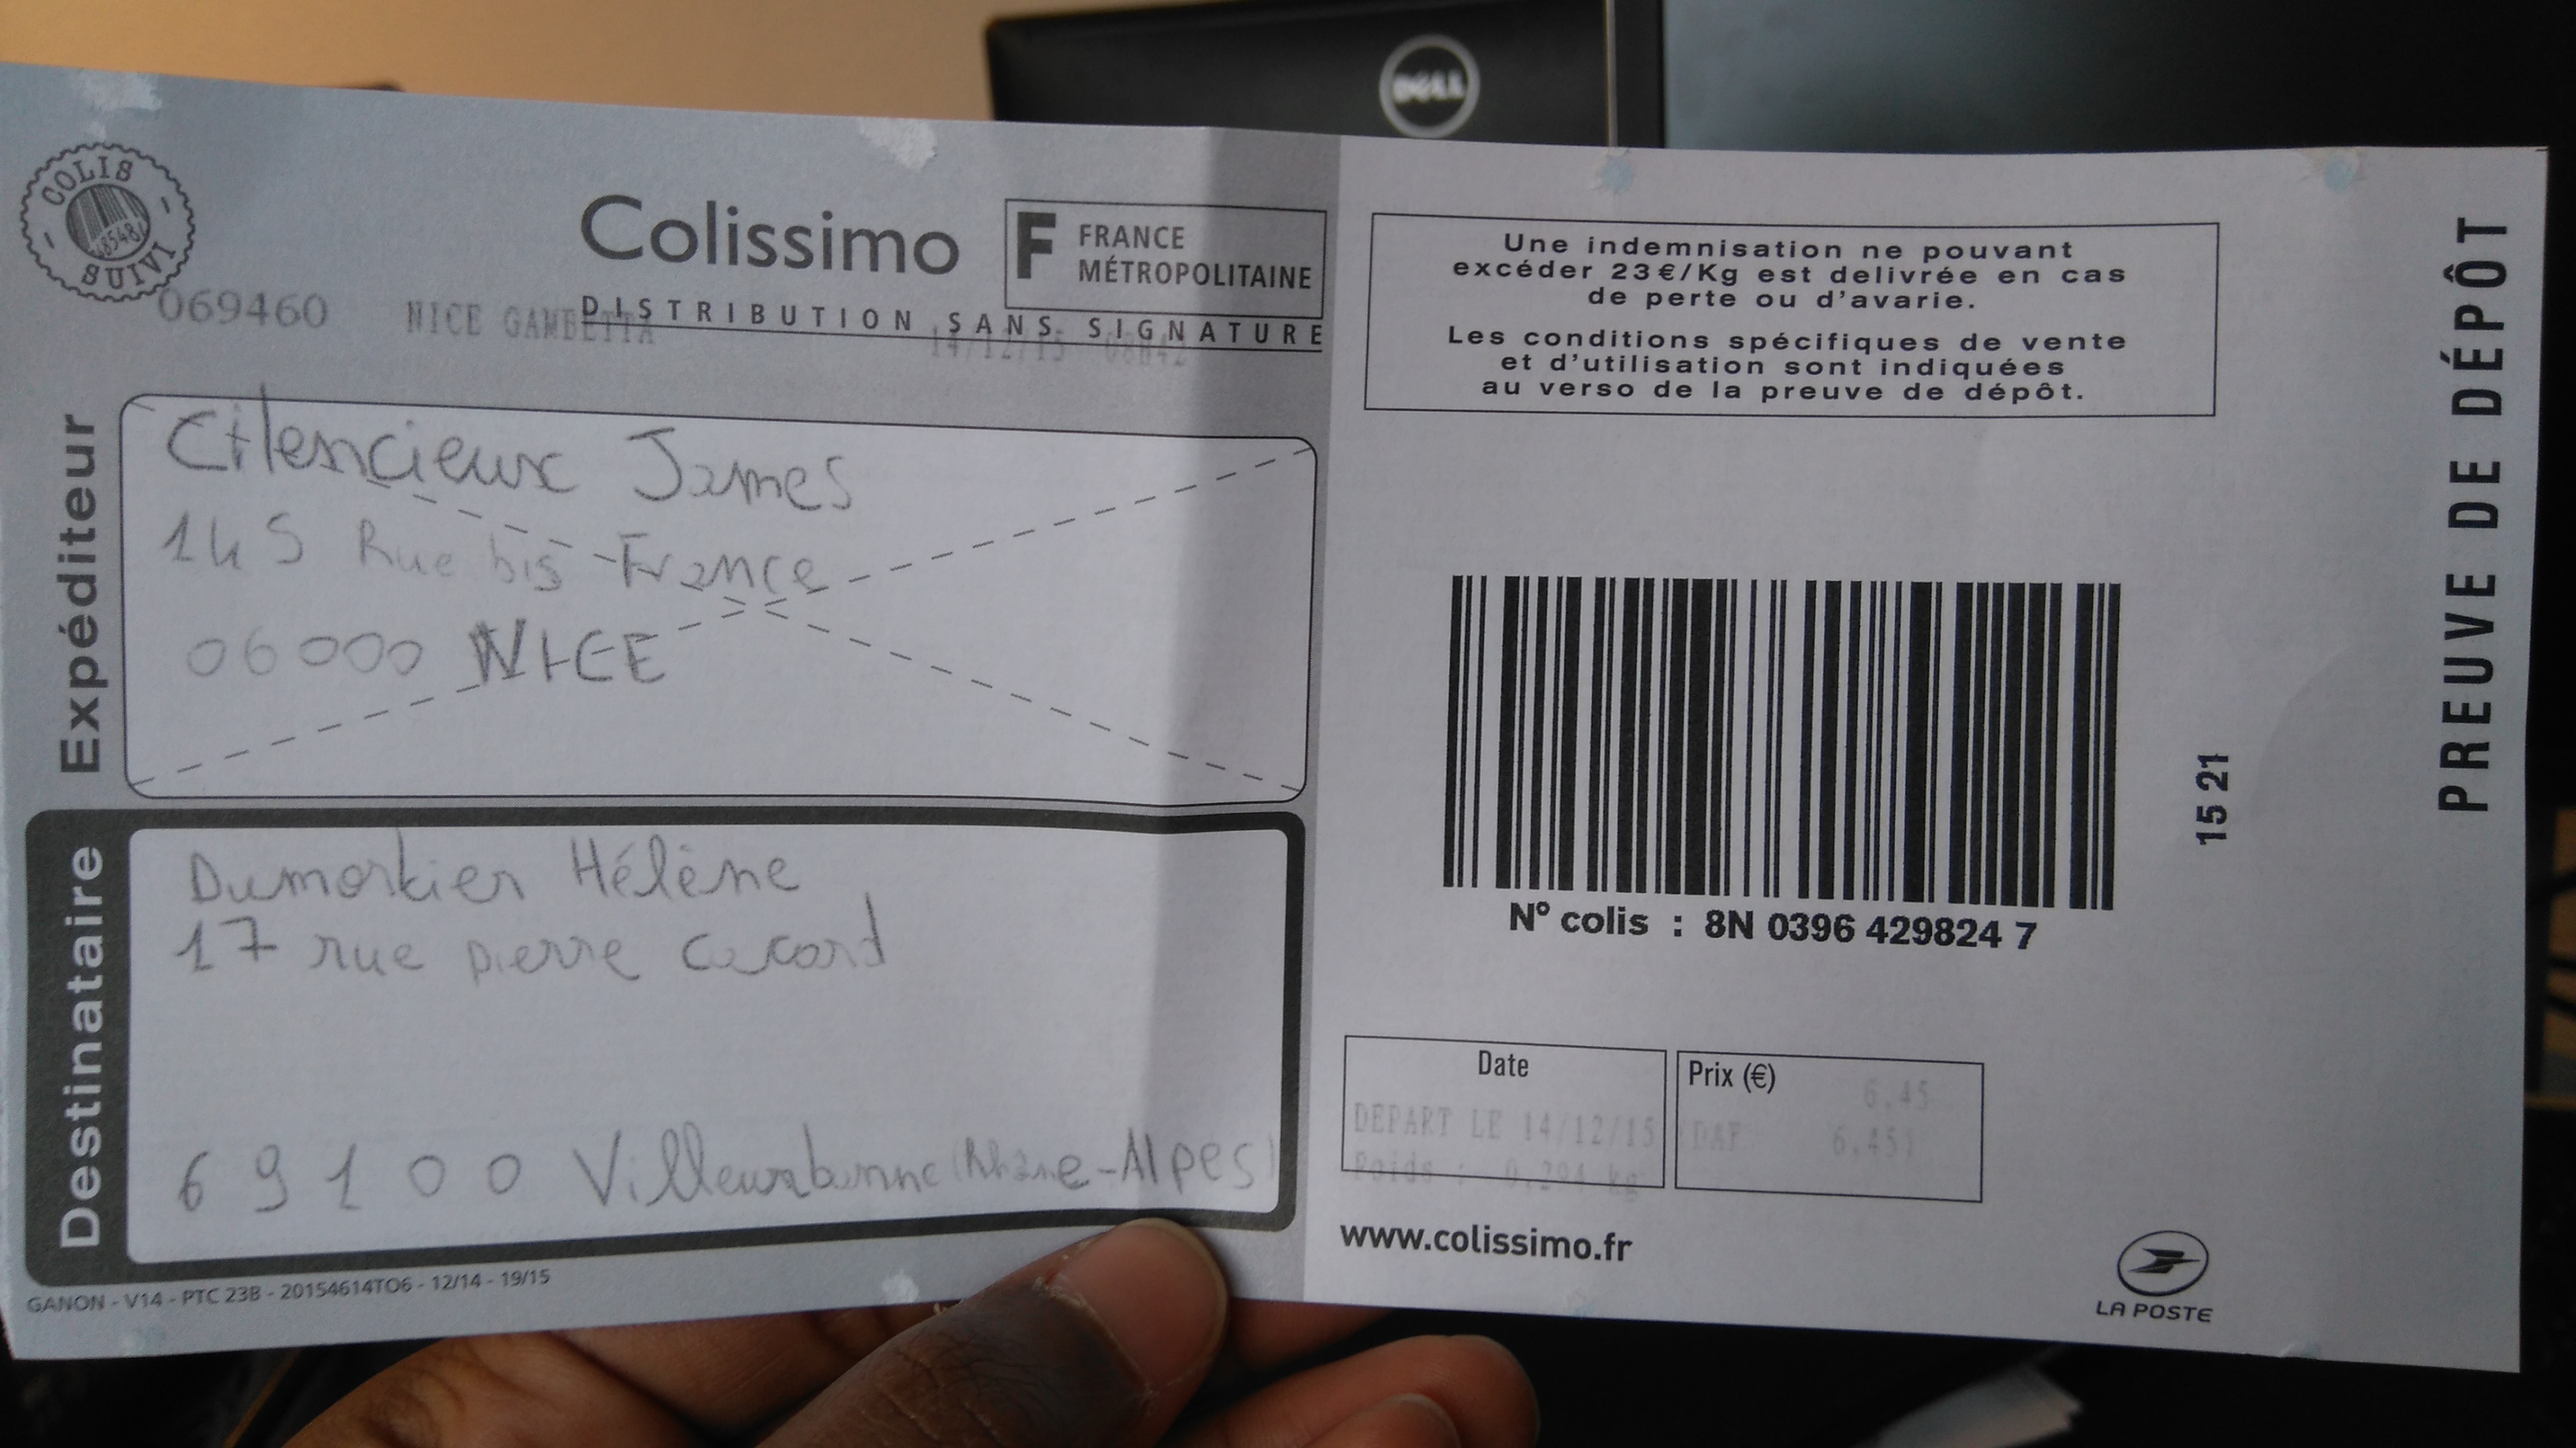 DELL
COLIS
SUIVI
Colissimo
F FRANCE
MÉTROPOLITAINE
DISTRIBUTION SANS SIGNATURE
069460 NICE GAMBETTA 14/12/15 08H42
Expéditeur
Cilencieux James
145 Rue bis France
06000 NICE
Destinataire
Dumortier Hélène
17 rue pierre cacard
69100 Villeurbanne (Rhône-Alpes)
GANON - V14 - PTC 23B - 20154614TO6 - 12/14 - 19/15
Une indemnisation ne pouvant
excéder 23€/Kg est delivrée en cas
de perte ou d'avarie.
Les conditions spécifiques de vente
et d'utilisation sont indiquées
au verso de la preuve de dépôt.
N° colis : 8N 0396 429824 7
15 21
PREUVE DE DÉPÔT
Date
DEPART LE 14/12/15
Poids : 0.294 kg
Prix (€)
6.45
DAF 6.45
www.colissimo.fr
LA POSTE